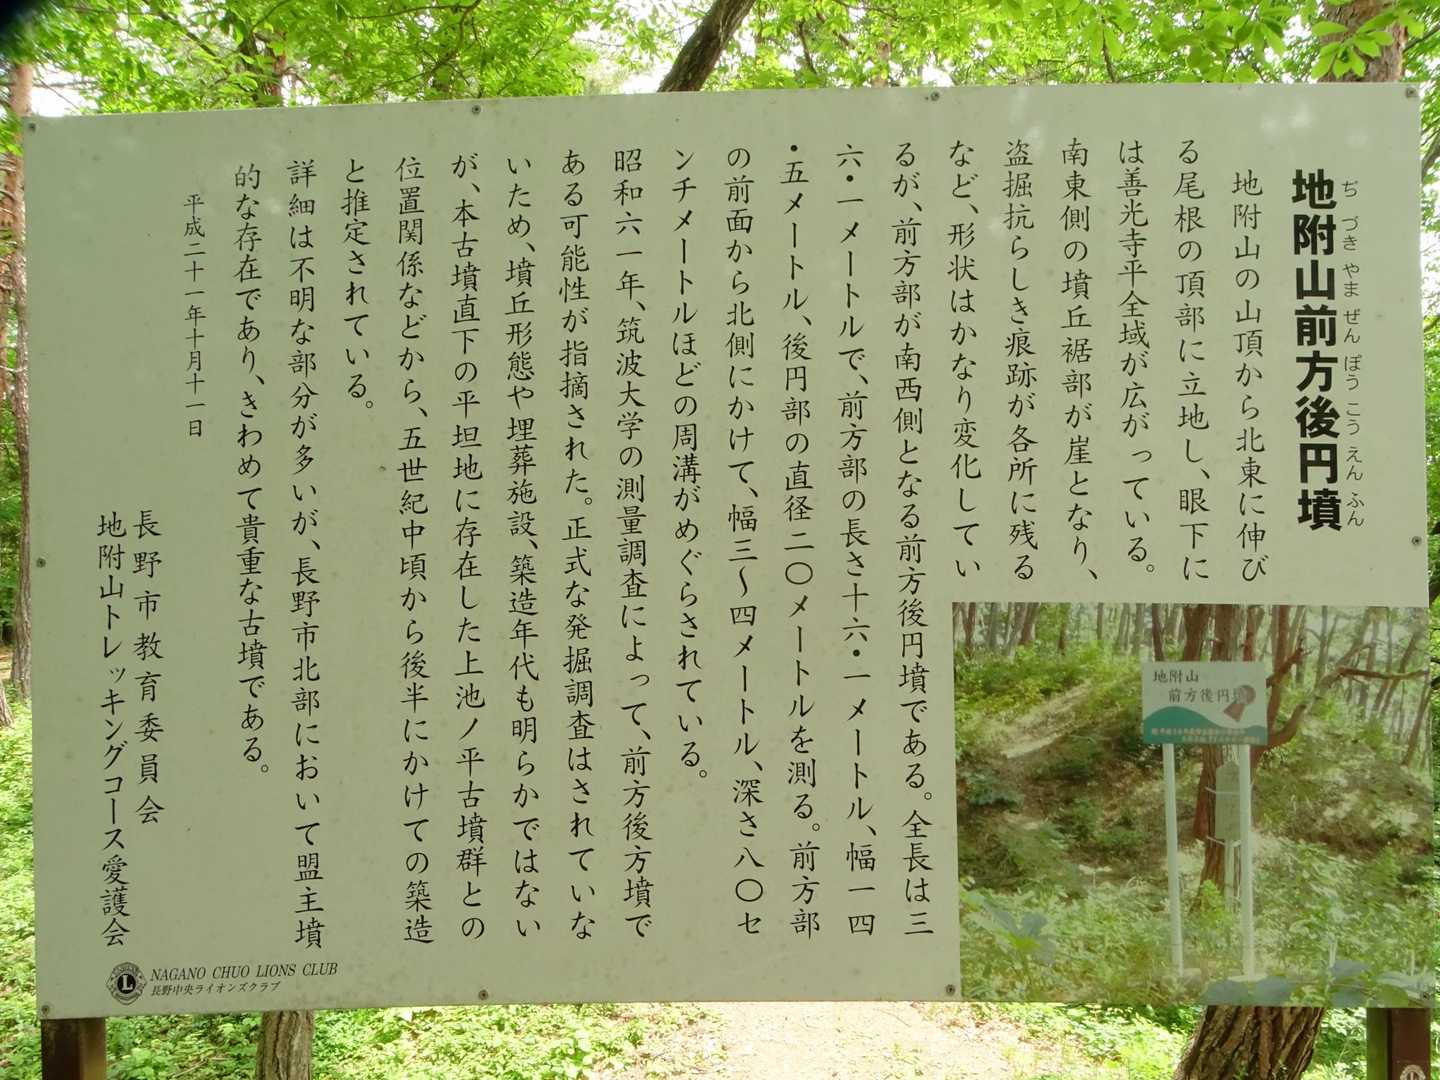 地附山前方後円墳
ぢ づき やま ぜん ぽう こう えん ふん
地附山の山頂から北東に伸び
る尾根の頂部に立地し、眼下に
は善光寺平全域が広がっている。
南東側の墳丘裾部が崖となり、
盗掘抗らしき痕跡が各所に残る
など、形状はかなり変化してい
るが、前方部が南西側となる前方後円墳である。全長は三
六・一メートルで、前方部の長さ十六・一メートル、幅一四
・五メートル、後円部の直径二〇メートルを測る。前方部
の前面から北側にかけて、幅三〜四メートル、深さ八〇セ
ンチメートルほどの周溝がめぐらされている。
昭和六一年、筑波大学の測量調査によって、前方後方墳で
ある可能性が指摘された。正式な発掘調査はされていな
いため、墳丘形態や埋葬施設、築造年代も明らかではない
が、本古墳直下の平坦地に存在した上池ノ平古墳群との
位置関係などから、五世紀中頃から後半にかけての築造
と推定されている。
詳細は不明な部分が多いが、長野市北部において盟主墳
的な存在であり、きわめて貴重な古墳である。
平成二十一年十月十一日
長野市教育委員会
地附山トレッキングコース愛護会
L
NAGANO CHUO LIONS CLUB
長野中央ライオンズクラブ
地附山
前方後円墳